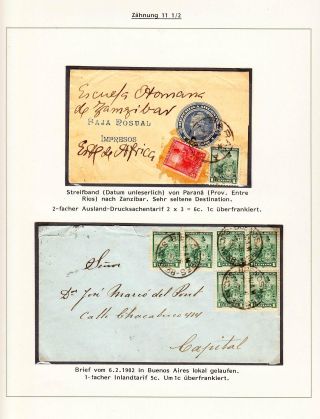 Zähnung 11 1/2
Escuela Otomana
de Zamzibar
BAJA POSTAL
IMPRESOS
Est de Africa
Streifband (Datum unleserlich) von Paraná (Prov. Entre
Rios) nach Zanzibar. Sehr seltene Destination.
2-facher Ausland-Drucksachentarif 2 x 3 = 6c. 1c überfrankiert.
Señor
Dr José Marcó del Pont
Calle Chacabuco 414
Capital
Brief vom 6.2.1902 in Buenos Aires lokal gelaufen.
1-facher Inlandtarif 5c. Um 1c überfrankiert.